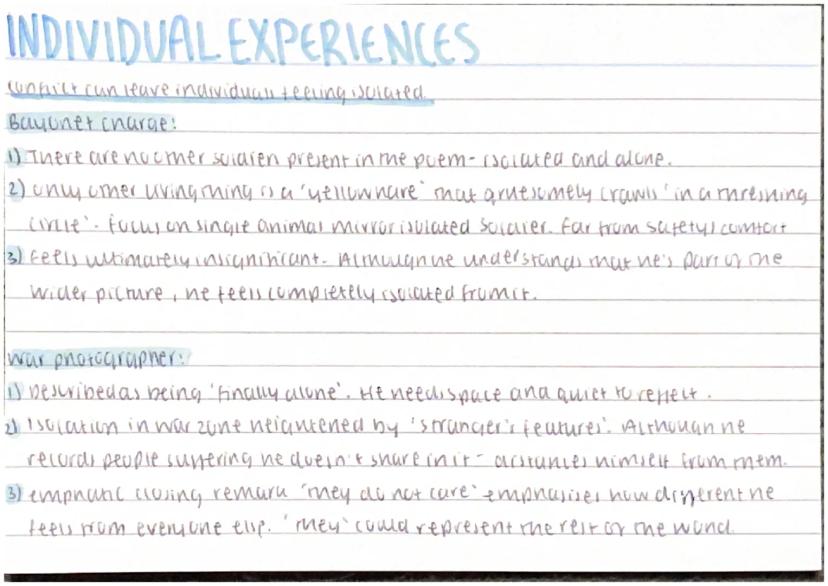 INDIVIDUAL EXPERIENCES
Conflict can leave individuals feeling isolated.
Bayonet charge:
1) There are no other soldiers present in the poem - isolated and alone.
2) Only other living thing is a 'yellow hare' that gruesomely crawls 'in a threshing
circle'. Focus on single animal mirror isolated soldier. Far from safety / comfort
3) Feels ultimately insignificant. Although he understands that he's part of the
wider picture, he feels completely isolated from it.
War photographer:
1) Described as being 'finally alone'. He needs space and quiet to reflect.
2) Isolation in war zone heightened by 'stranger's features'. Although he
records people suffering he doesn't share in it - distances himself from them.
3) emphatic closing remark 'they do not care' emphasises how different he
feels from everyone else. 'They' could represent the rest of the world.